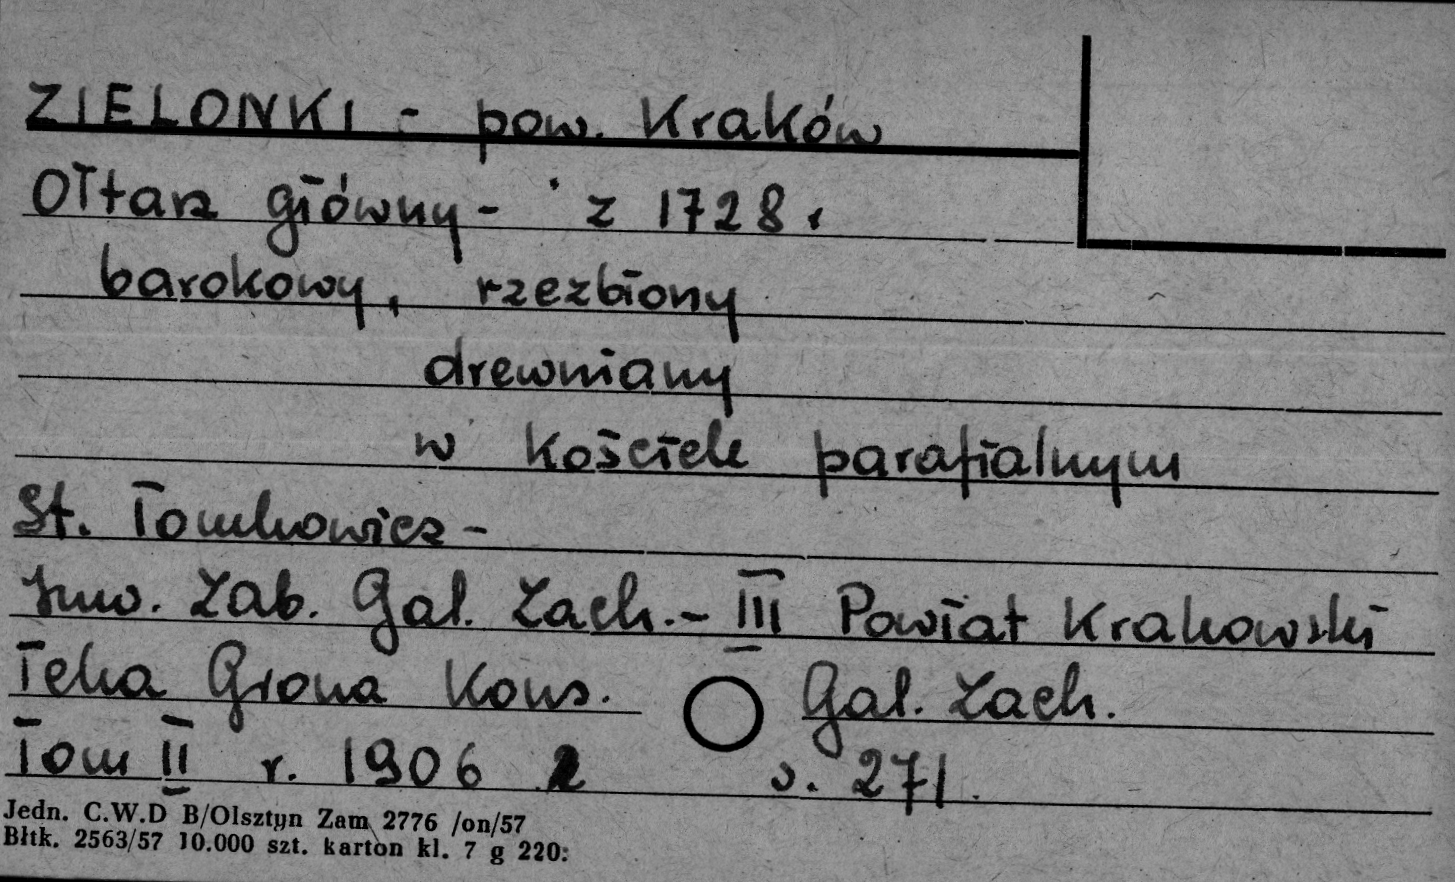 ZIELONKI - pow. Kraków
Ołtarz główny - z 1728 r
barokowy, rzezbiony
drewniany
w kościele parafialnym
St. Tomkowicz -
Inw. Zab. Gal. Zach. - III Powiat Krakowski
Teka Grona Kons. Gal. Zach.
Tom II r. 1906 s. 271.
Jedn. C.W.D B/Olsztyn Zam. 2776 /on/57
Bltk. 2563/57 10.000 szt. karton kl. 7 g 220.